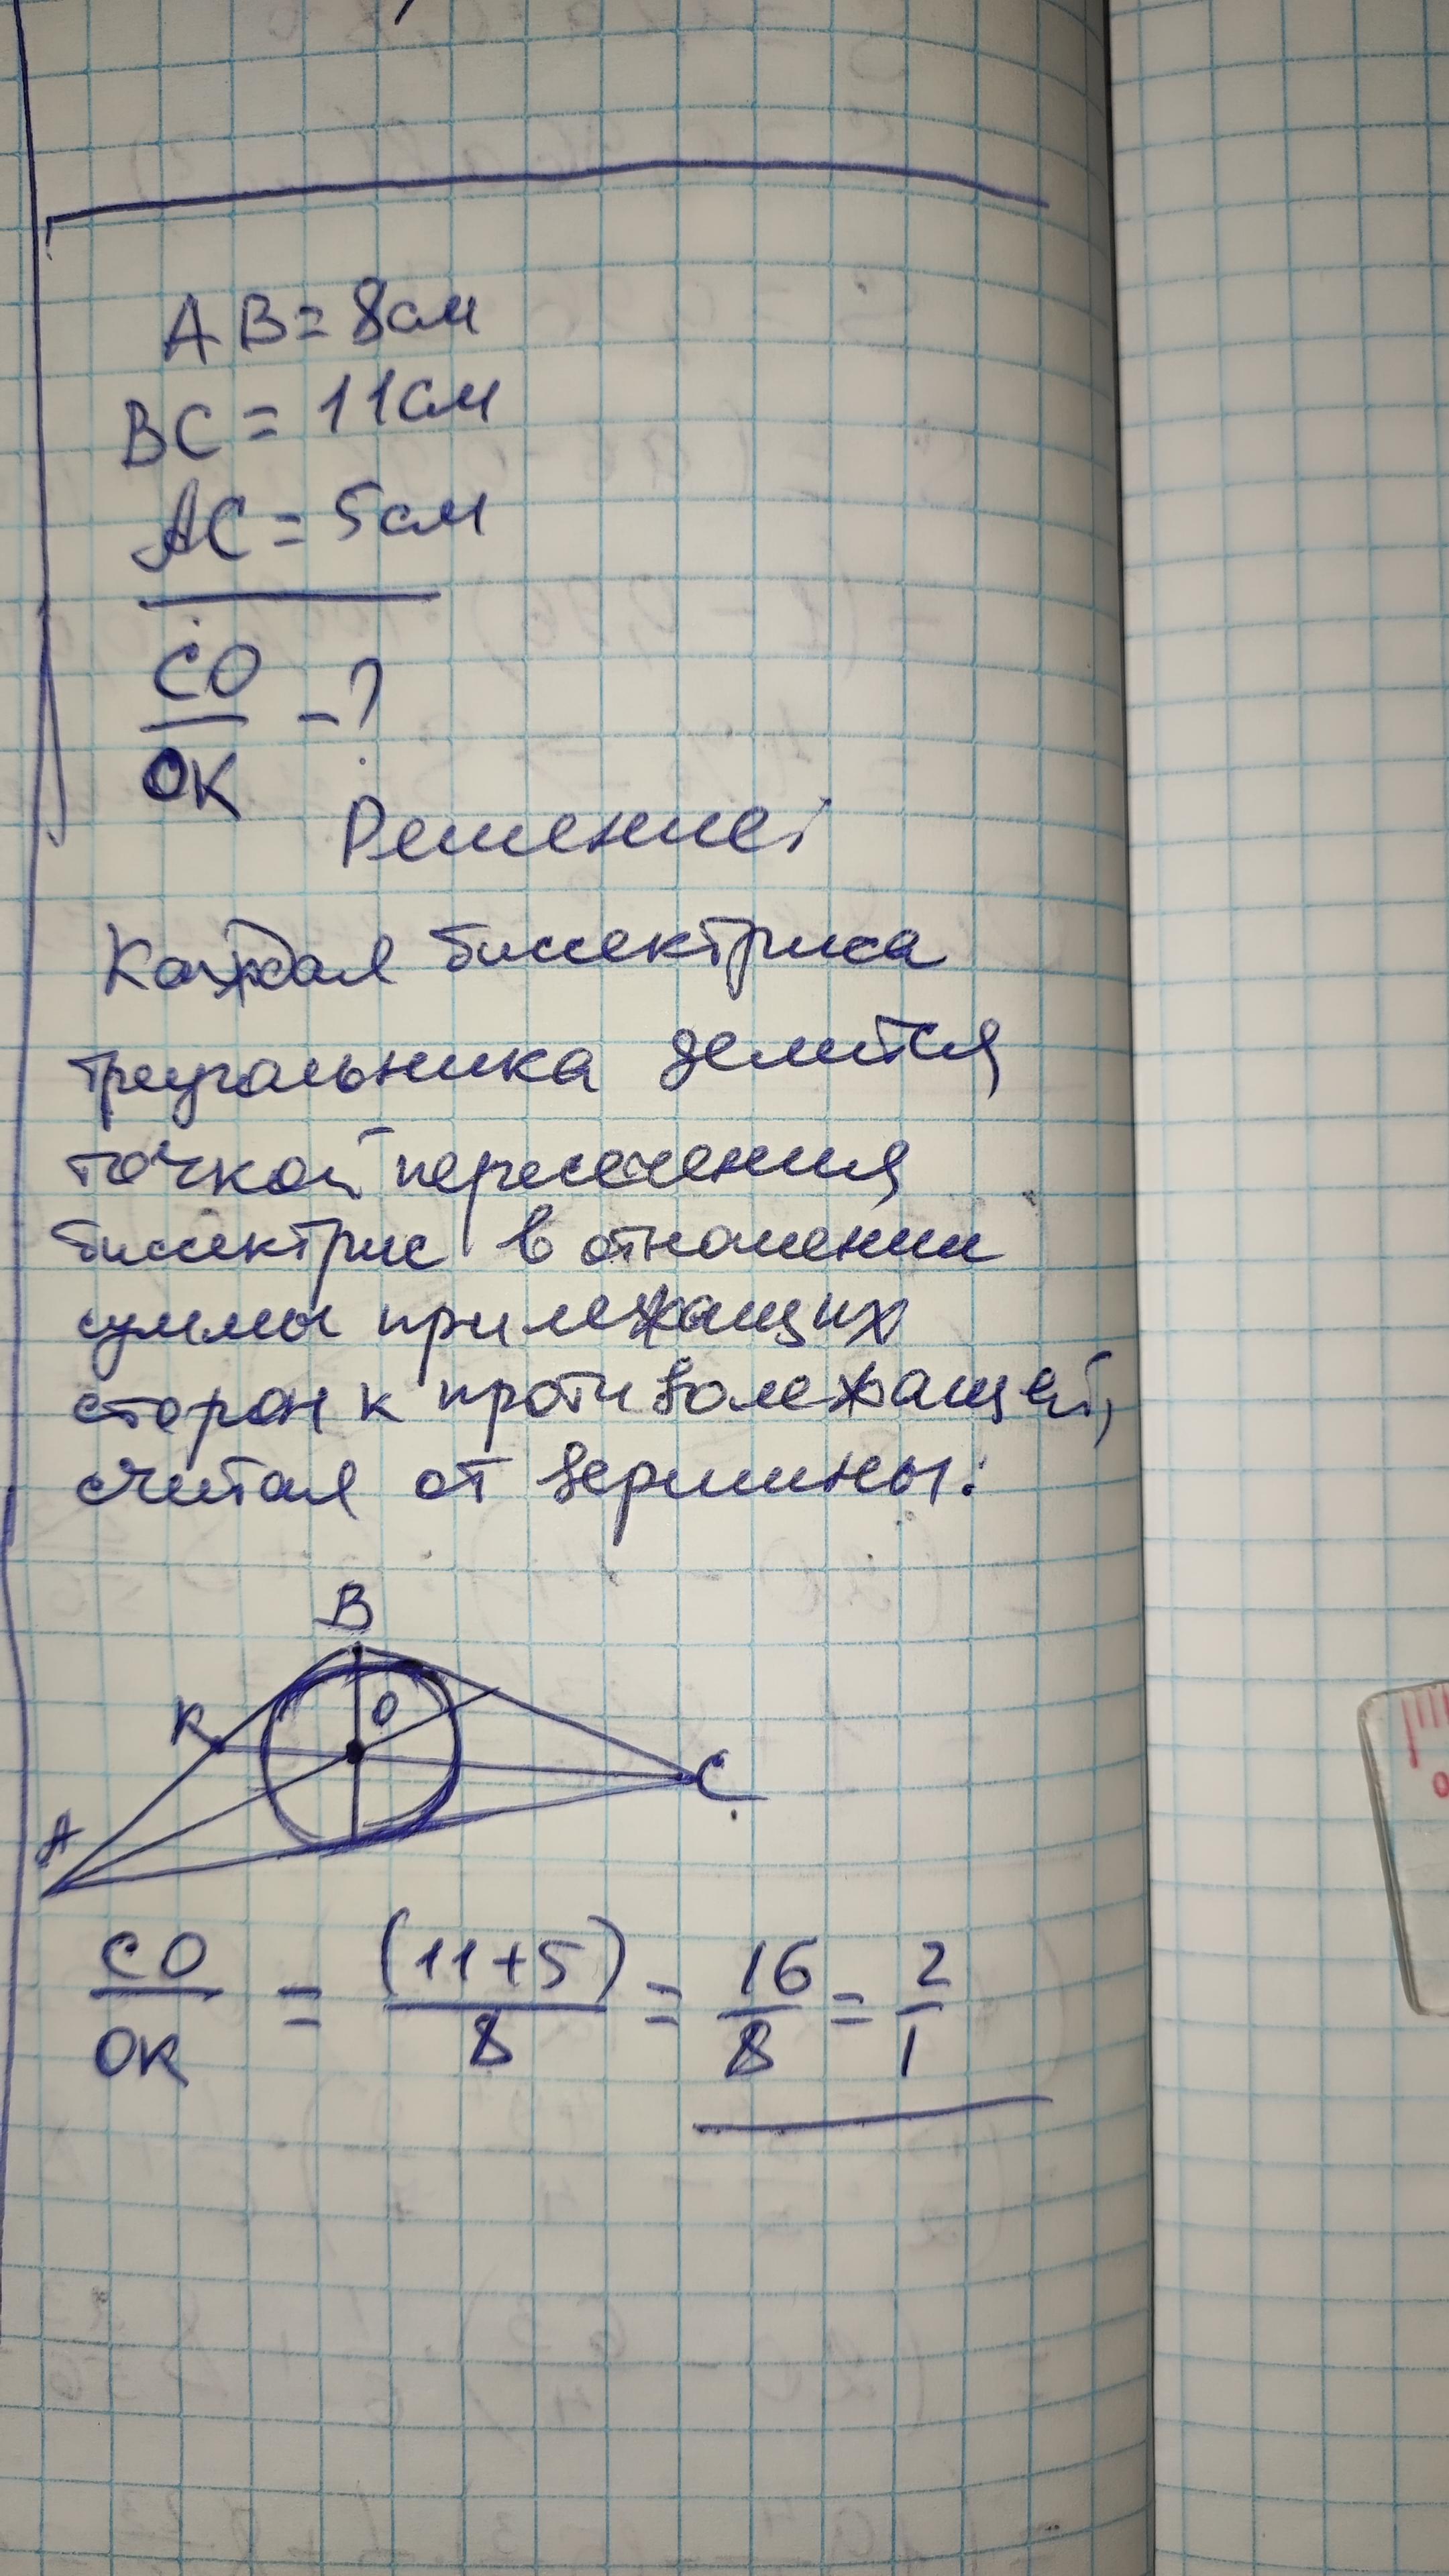 AB = 8см
BC = 11см
AC = 5см
CO
— - ?
OK
Решение:
Каждая биссектриса
треугольника делится
точкой пересечения
биссектрис в отношении
суммы прилежащих
сторон к противолежащей,
считая от вершины:
B
K
O
C
A
CO/OK = (11+5)/8 = 16/8 = 2/1